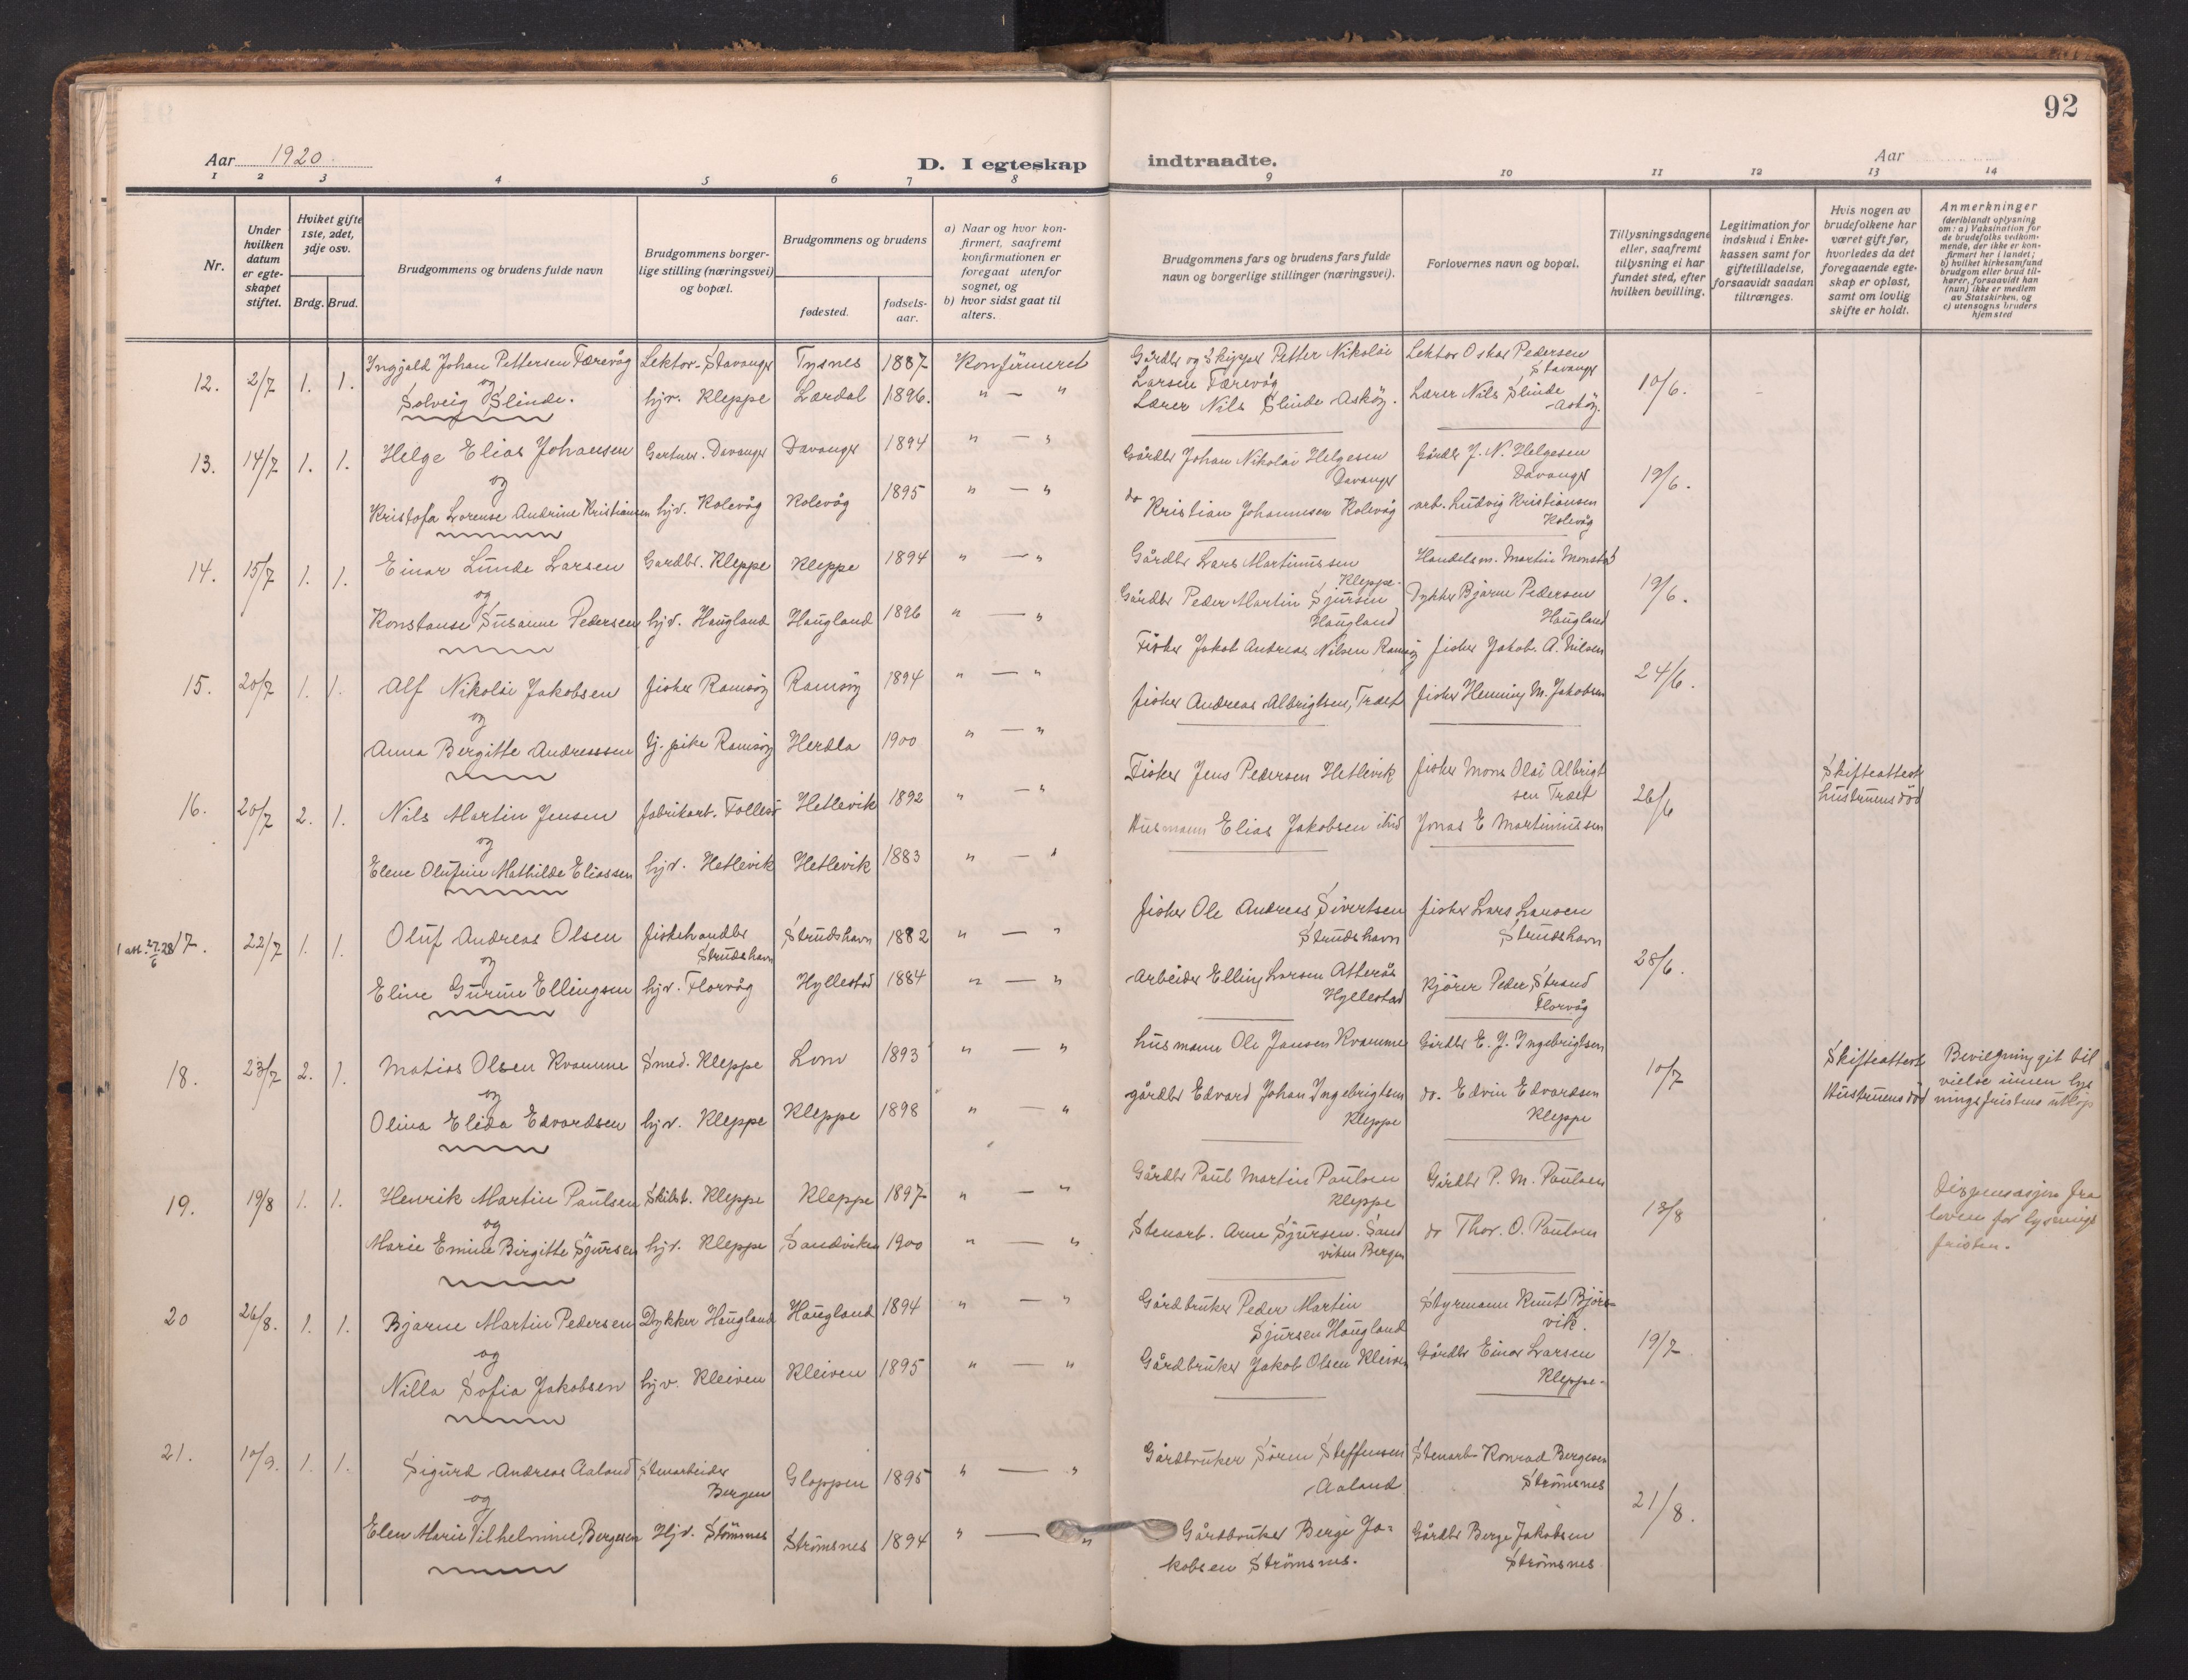 92
Aar 1920. D. I egteskap indtraadte. Aar
1 2 3 4 5 6 7 8 9 10 11 12 13 14
Nr.
Under hvilken datum er egteskapet stiftet.
Hvilket gifte 1ste, 2det, 3dje osv.
Brdg. Brud.
Brudgommens og brudens fulde navn
Brudgommens borgerlige stilling (næringsvei) og bopæl.
Brudgommens og brudens
fødested.
fødselsaar.
a) Naar og hvor konfirmert, saafremt konfirmationen er foregaat utenfor sognet, og
b) hvor sidst gaat til alters.
Brudgommens fars og brudens fars fulde navn og borgerlige stillinger (næringsvei).
Forlovernes navn og bopæl.
Tillysningsdagene eller, saafremt tillysning ei har fundet sted, efter hvilken bevilling.
Legitimation for indskud i Enkekassen samt for giftetilladelse, forsaavidt saadan tiltrænges.
Hvis nogen av brudefolkene har været gift før, hvorledes da det foregaaende egteskap er opløst, samt om lovlig skifte er holdt.
Anmerkninger
(deriblandt oplysning om: a) Vaksination for de brudefolks vedkommende, der ikke er konfirmert her i landet; b) hvilket kirkesamfund brudgom eller brud tilhører, forsaavidt han (hun) ikke er medlem av Statskirken, og c) utensogns bruders hjemsted
12. 2/7 1. 1. Ingjald Johan Pettersen Færevåg Lektor - Stavanger Tysnes 1887 Konfirmeret Gårdbr og Skipper Petter Nikolai Larsen Færevåg Lektor Oskar Pedersen Stavanger 10/6.
og
Solveig Slinde. hjv. Kleppe Lærdal 1896. " — " Lærer Nils Slinde Askøy. Lærer Nils Slinde Askøy.
13. 14/7 1. 1. Helge Elias Johansen Gartner. Davanger Davanger 1894 " — " Gårdbr Johan Nikolai Helgesen Davanger Gårdbr J. N. Helgesen Davanger 19/6.
og
Kristofa Lorense Andrine Kristiansen hjv. Kolevåg Kolevåg 1895 " — " do Kristian Johannesen Kolevåg arb. Ludvig Kristiansen Kolevåg
14. 15/7 1. 1. Einar Lunde Larsen Gardbr. Kleppe Kleppe 1894 " — " Gårdbr Lars Martinussen Kleppe. Handelsm. Martin Monstad 19/6.
og
Konstanse Susanne Pedersen hjv. Haugland Haugland 1896 " — " Gårdbr Peder Martin Sjursen Haugland Dykker Bjarne Pedersen Haugland
15. 20/7 1. 1. Alf Nikolai Jakobsen fisker Ramsøy Ramsøy 1894 " — " Fisker Jakob Andreas Nilsen Ramsøy fisker Jakob. A. Nilsen 24/6.
og
Anna Bergitte Andreassen tj. pike Ramsøy Herdla 1900 " — " fisker Andreas Albrigtsen, Træet fisker Henning M. Jakobsen
16. 20/7 2. 1. Nils Martin Jensen fabrikarb. Follesø Hetlevik 1892 " — " Fisker Jens Pedersen Hetlevik fisker Mons Olai Albrigtsen Træet 26/6 Skifteattest hustruens død
og
Elene Olufine Mathilde Eliassen hjv. Hetlevik Hetlevik 1883 " — " Husmann Elias Jakobsen ibid Jonas E Martinussen
1 att. 27/6 28 17. 22/7 1. 1. Oluf Andreas Olsen fiskehandler Strudshavn Strudshavn 1882 " — " fisker Ole Andreas Sivertsen Strudshavn fisker Lars Larsen Strudshavn 28/6.
og
Eline Gurine Ellingsen hjv. Florvåg Hyllestad 1884 " — " Arbeider Elling Larsen Atterås Hyllestad Kjører Peder Strand Florvåg
18. 23/7 2. 1. Matias Olsen Kvamme Smed. Kleppe Lom 1893 " — " husmann Ole Jansen Kvamme Gårdbr E. J. Ingebrigtsen 10/7 Skifteattest Hustruens død Bevilgning git til vielse innen lysningsfristens utløp
og
Olina Elida Edvardsen hjv. Kleppe Kleppe 1898 " — " gårdbr Edvard Johan Ingebrigtsen Kleppe do. Edvin Edvardsen Kleppe
19. 19/8 1. 1. Henrik Martin Paulsen Skibst. Kleppe Kleppe 1897 " — " Gårdbr Paul Martin Paulsen Kleppe Gårdbr P. M. Paulsen 13/8 Dispensasjon fra loven for lysningsfristen.
og
Marie Emine Birgitte Sjursen hjv. Kleppe Sandviken 1900 " — " Stenarb. Arne Sjursen. Sandviken Bergen do Thor. O. Paulsen
20 26/8. 1. 1. Bjarne Martin Pedersen Dykker Haugland Haugland 1894 " — " Gårdbruker Peder Martin Sjursen Haugland Styrmann Knut Bjørsvik. 19/7
og
Nilla Sofia Jakobsen hjv. Kleiven Kleiven 1895 " — " Gårdbruker Jakob Olsen Kleiven Gårdbr Einar Larsen Kleppe.
21. 10/9. 1. 1. Sigurd Andreas Aaland Stenarbeider Bergen Gloppen 1895 " — " Gårdbruker Søren Steffensen Aaland Stenarb Konrad Bergesen Strømsnes 21/8.
og
Elen Marie Vilhelmine Bergesen Hjv. Stømsnes Strømsnes 1894 " — " Gårdbruker Berge Jakobsen Strømsnes. Gårdbr Berge Jakobsen Strømsnes